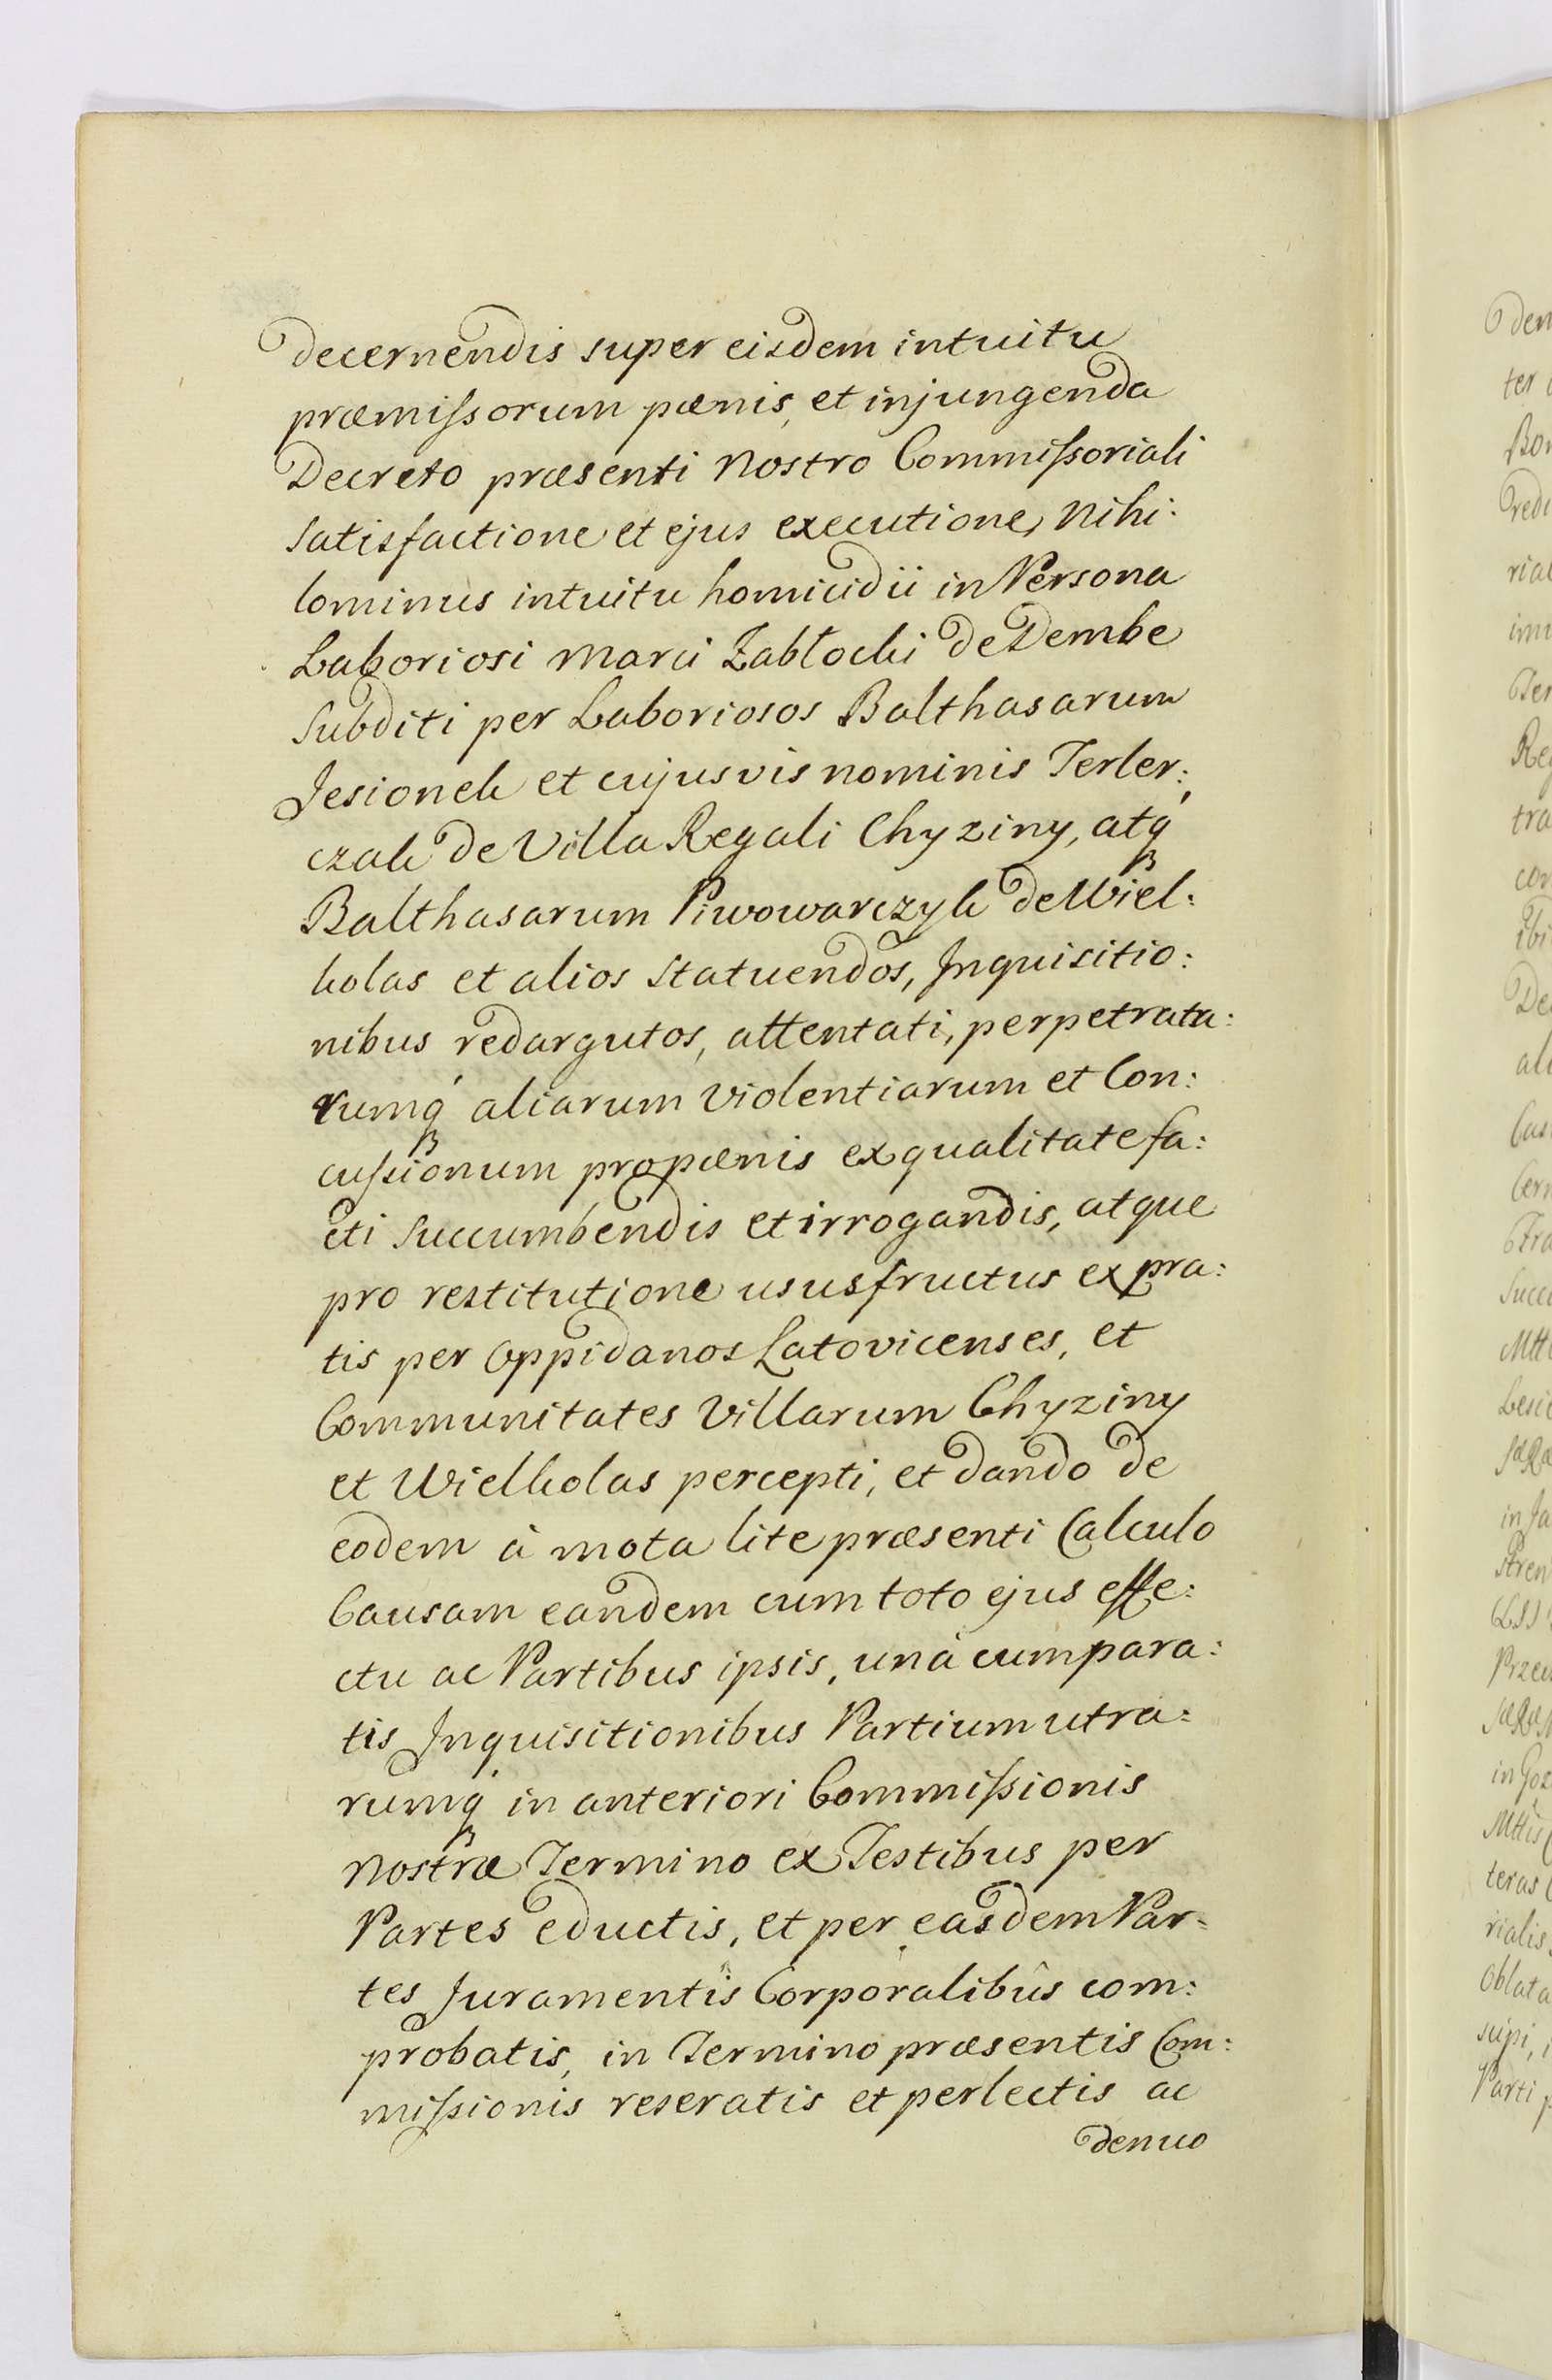 decernendis super eisdem intuitu
præmissorum pænis, et injungenda
Decreto præsenti Nostro Commissoriali
satisfactione et ejus executione, Nihi:
lominus intuitu homicidii in Persona
Laboriosi Marci Zabłocki de Dembe
subditi per Laboriosos Balthasarum
Jesionek et cujusvis nominis Terler:
czak de Villa Regali Chyziny, atq́
Balthasarum Piwowarczyk de Wiel:
kolas et alios statuendos, Inquisitio:
nibus redargutos, attentati, perpetrata:
rumq́ aliarum violentiarum et Con:
cussionum pro pænis ex qualitate fa:
cti succumbendis et irrogandis, atque
pro restitutione ususfructus ex pra:
tis per Oppidanos Latovicenses, et
Communitates Villarum Chyziny
et Wielkolas percepti, et dando de
eodem à mota lite præsenti Calculo
Causam eandem cum toto ejus effe:
ctu ac Partibus ipsis, unà cum para:
tis Inquisitionibus Partium utra:
rumq́ in anteriori Commissionis
Nostræ Termino ex Testibus per
Partes eductis, et per easdem Par:
tes Juramentis Corporalibûs com:
probatis, in Termino præsentis Com:
missionis reseratis et perlectis ac
denuo